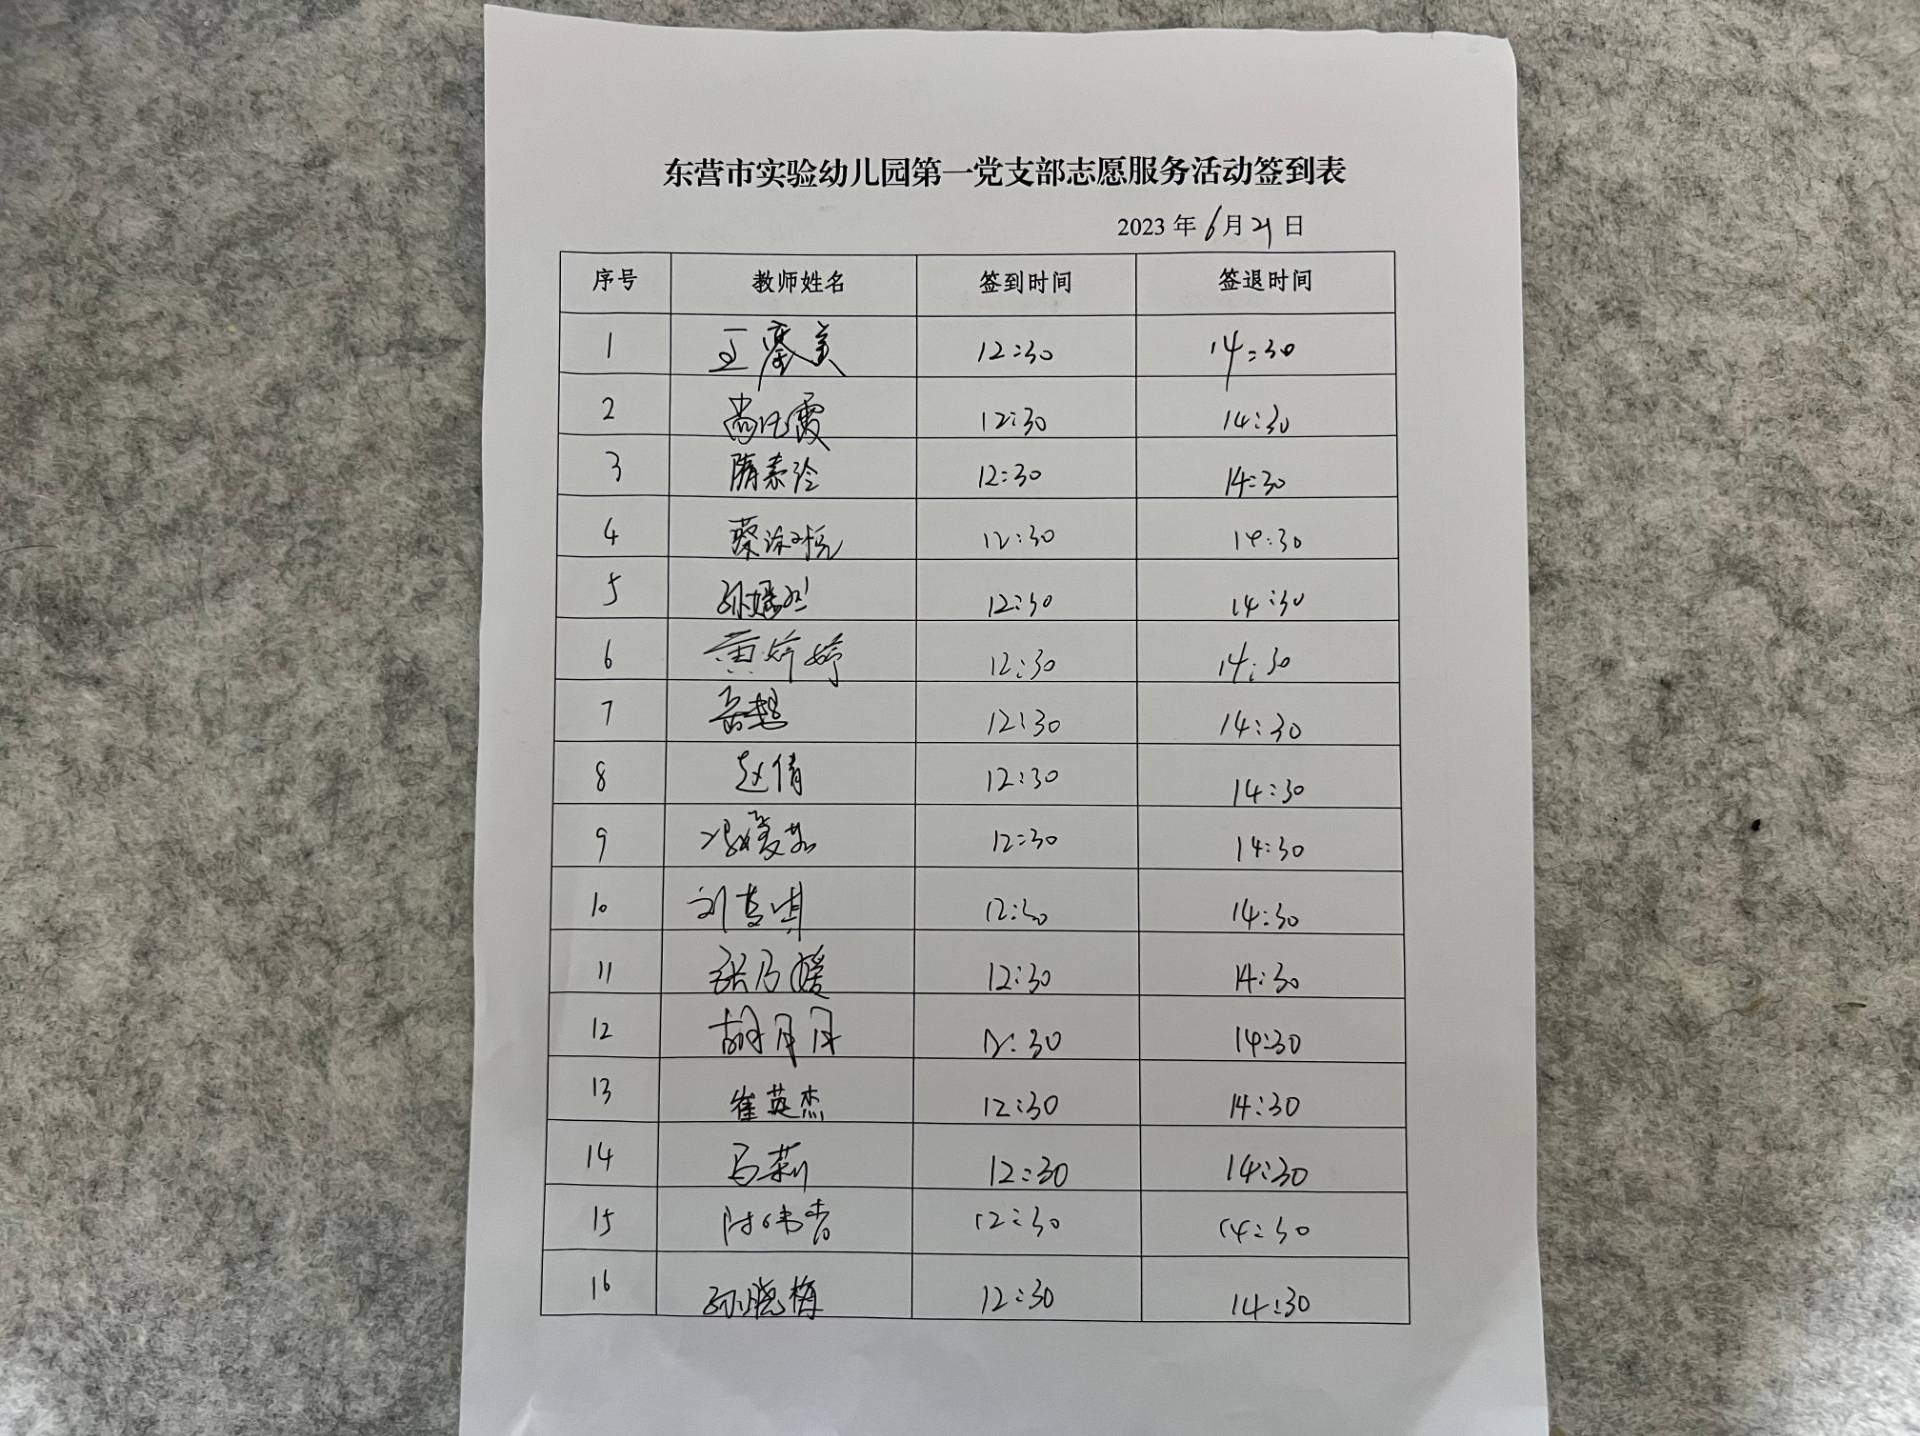 东营市实验幼儿园第一党支部志愿服务活动签到表
2023 年 6 月 21 日
序号 教师姓名 签到时间 签退时间
1 王騫美 12:30 14:30
2 尚 霞 12:30 14:30
3 隋素玲 12:30 14:30
4 蔡 12:30 14:30
5 孙 12:30 14:30
6 黄婷婷 12:30 14:30
7 岳超 12:30 14:30
8 赵倩 12:30 14:30
9 12:30 14:30
10 刘 琪 12:30 14:30
11 张乃媛 12:30 14:30
12 胡月月 12:30 14:30
13 崔英杰 12:30 14:30
14 马莉 12:30 14:30
15 陈伟香 12:30 14:30
16 孙晓梅 12:30 14:30